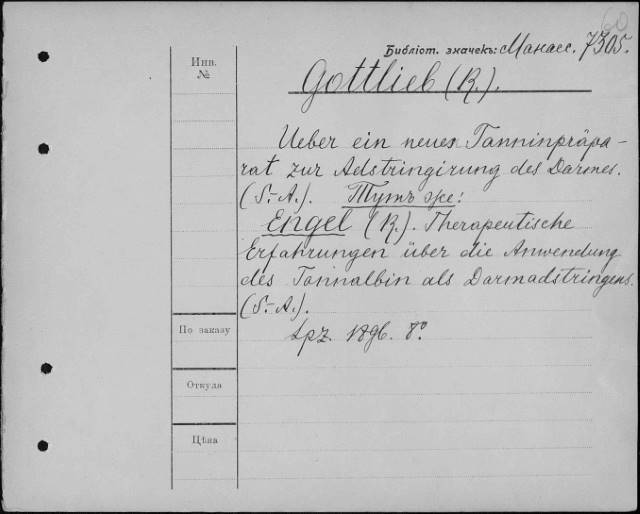 60
Библіот. значекъ: Манасс. 7305.
Инв.
№
Gottlieb (R.).
Ueber ein neues Tanninpräpa-
rat zur Adstringirung des Darmes.
(S.-A.). Тутъ же:
Engel (R.). Therapeutische
Erfahrungen über die Anwendung
des Tannalbin als Darmadstringens.
(S.-A.).
Lpz. 1896. 8°.
По заказу
Откуда
Цѣна